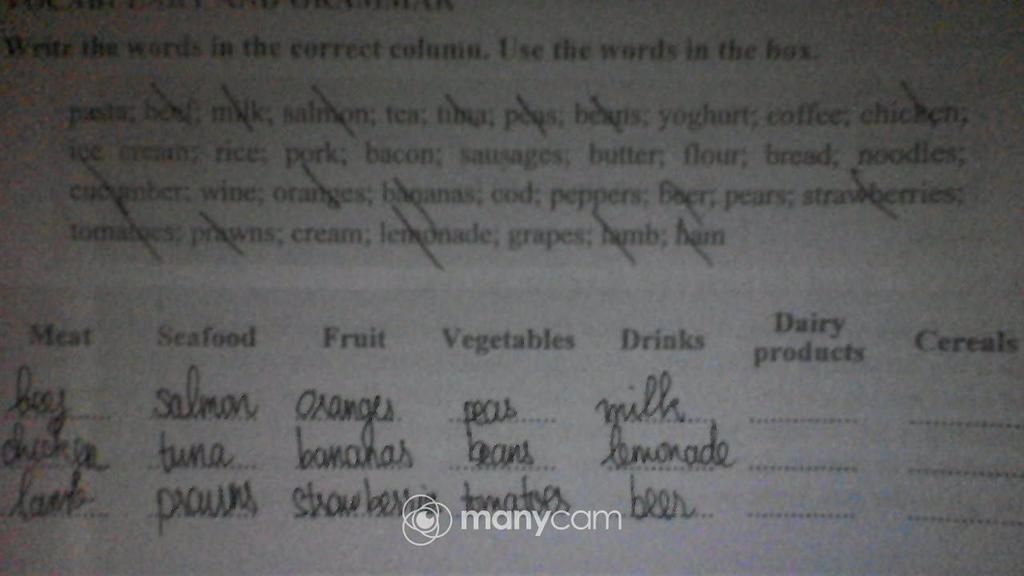 VOCABULARY AND GRAMMAR
Write the words in the correct column. Use the words in the box.
pasta; beef; milk; salmon; tea; tuna; peas; beans; yoghurt; coffee; chicken;
ice cream; rice; pork; bacon; sausages; butter; flour; bread; noodles;
cucumber; wine; oranges; bananas; cod; peppers; beer; pears; strawberries;
tomatoes; prawns; cream; lemonade; grapes; lamb; ham
Meat Seafood Fruit Vegetables Drinks Dairy products Cereals
beef salmon oranges peas milk
chicken tuna bananas beans lemonade
lamb prawns strawberries tomatoes beer
manycam